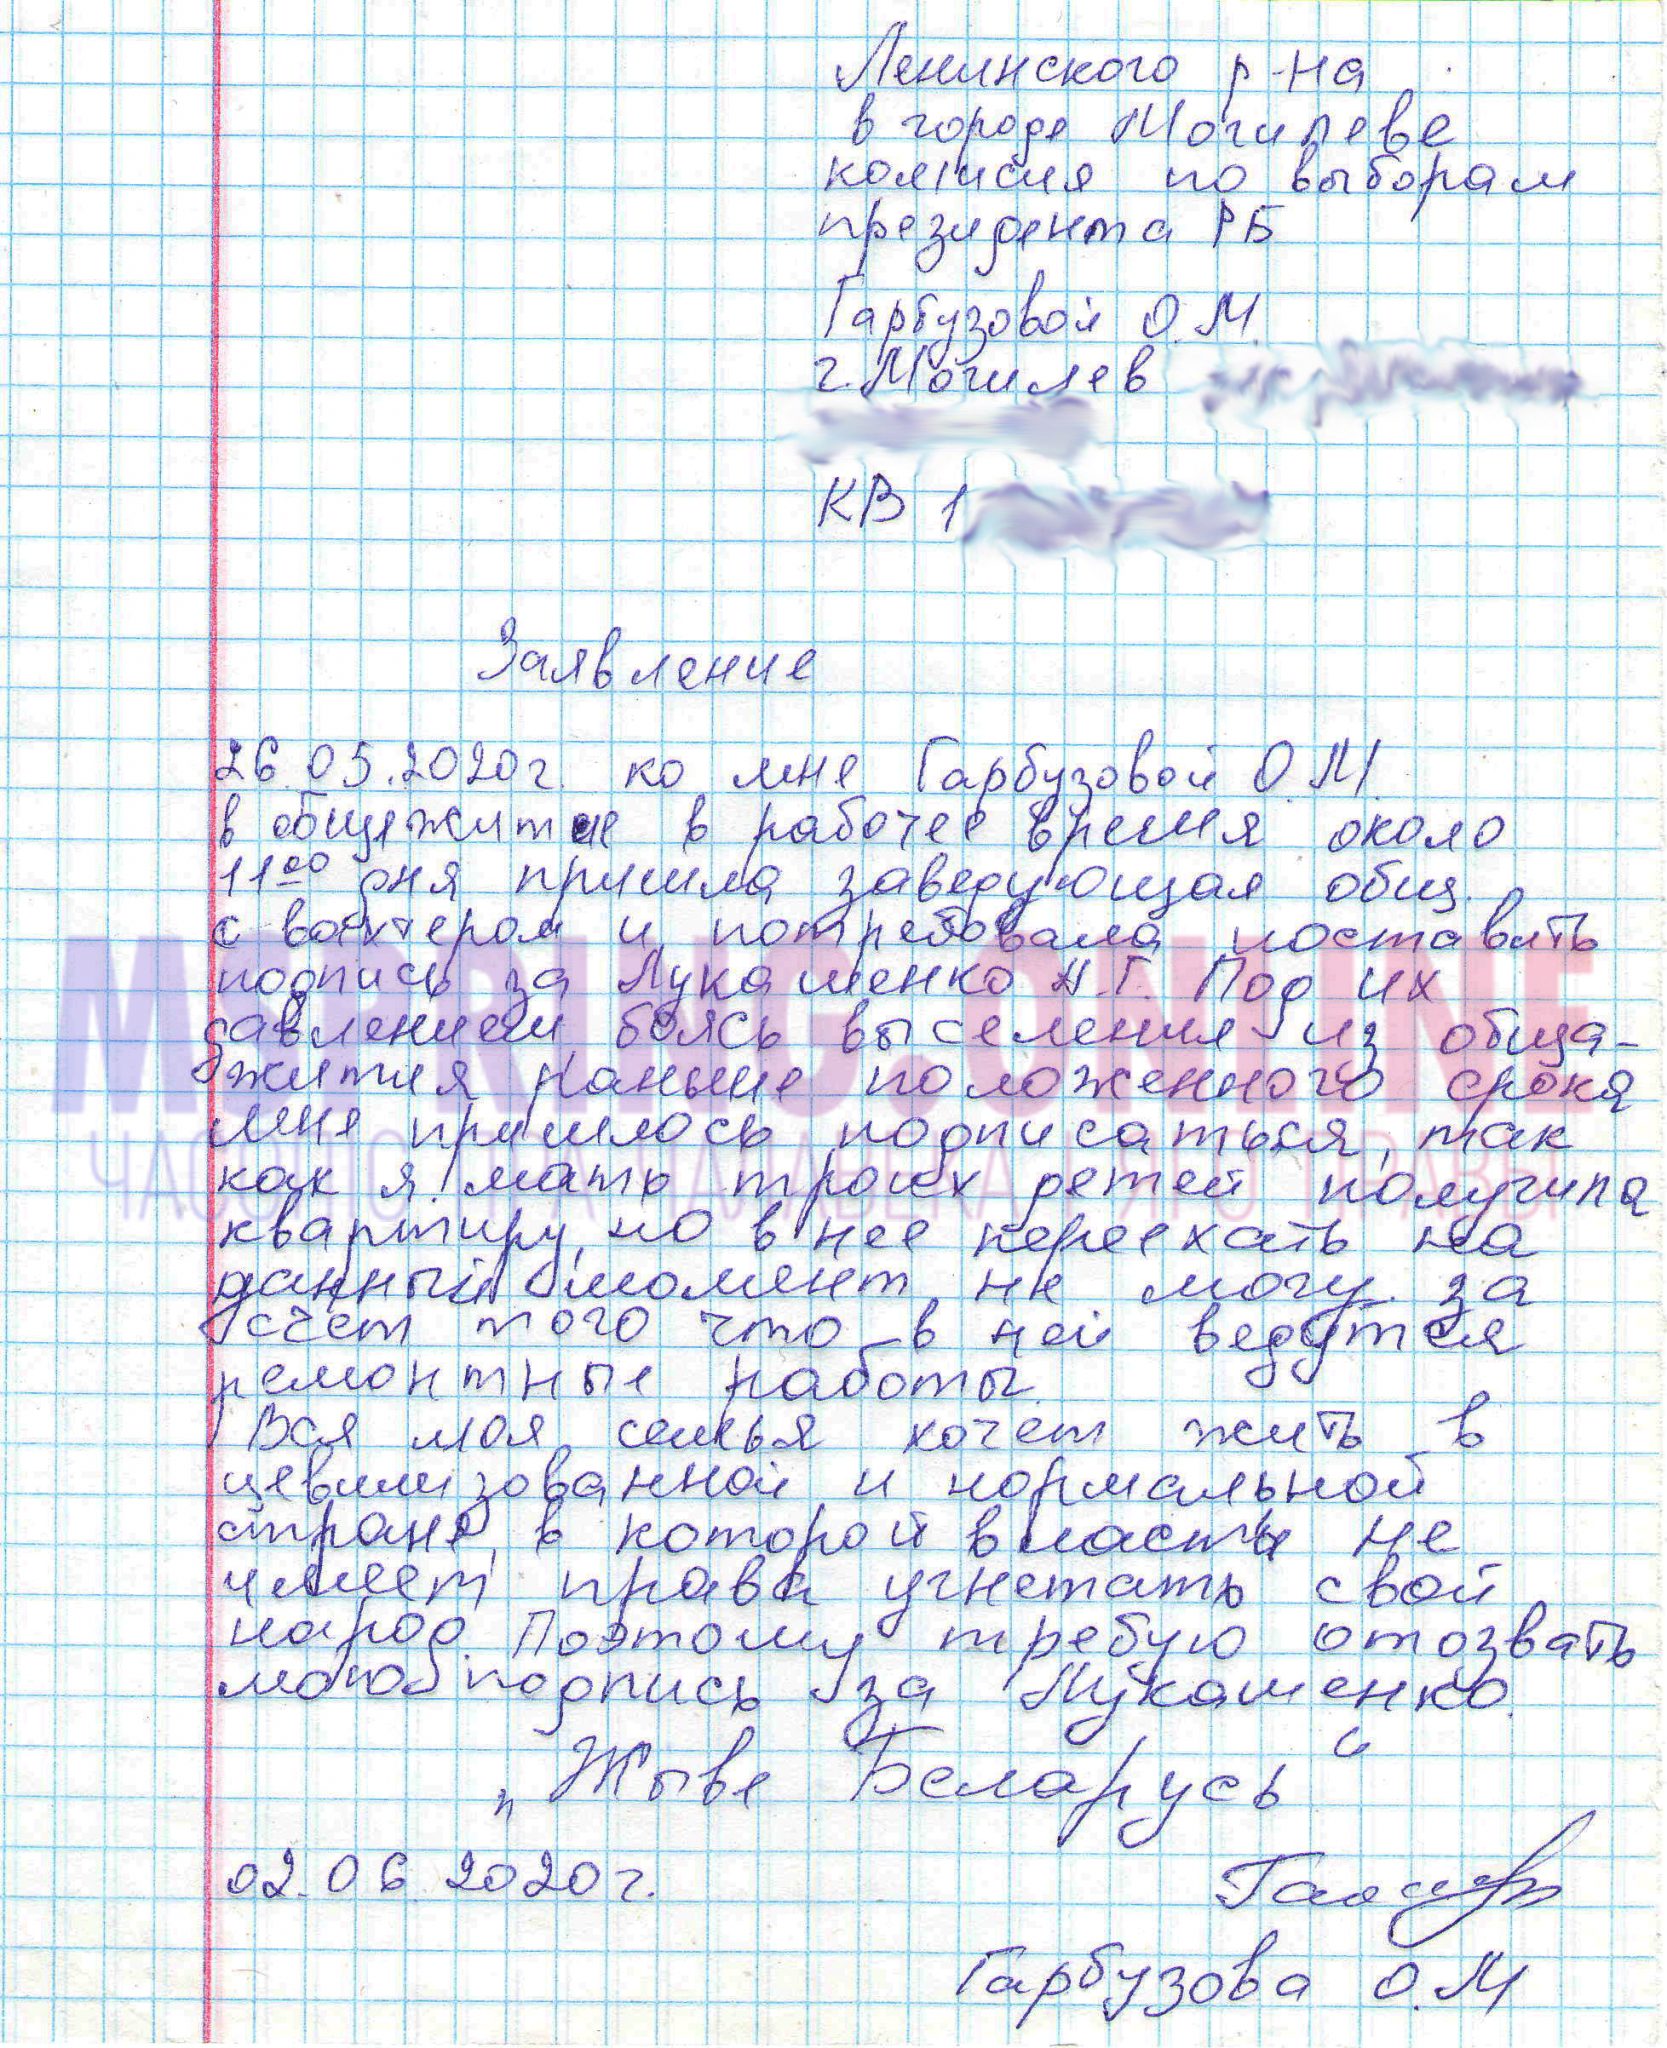 Ленинского р-на
в городе Могилеве
комисия по выборам
президента РБ
Гарбузовой О.М.
г. Могилев
КВ 1
Заявление
26.05.2020г. ко мне Гарбузовой О.М.
в общежитие в рабочее время около
11 00 дня пришла заведующая общ.
с вахтером и потребовала поставить
подпись за Лукашенко А.Г. Под их
давлением боясь выселения из обща-
жития раньше положенного срока
мне пришлось подписаться, так
как я мать троих детей получила
квартиру, но в нее переехать на
данный момент не могу за
счёт того что в ней ведутся
ремонтные работы.
Вся моя семья хочет жить в
цевилизованной и нормальной
стране, в которой власть не
имеет права угнетать свой
народ. Поэтому требую отозвать
мою подпись за Лукашенко.
„Жыве Беларусь“
02.06.2020г.
Гарбузова О.М
MSPRING.ONLINE